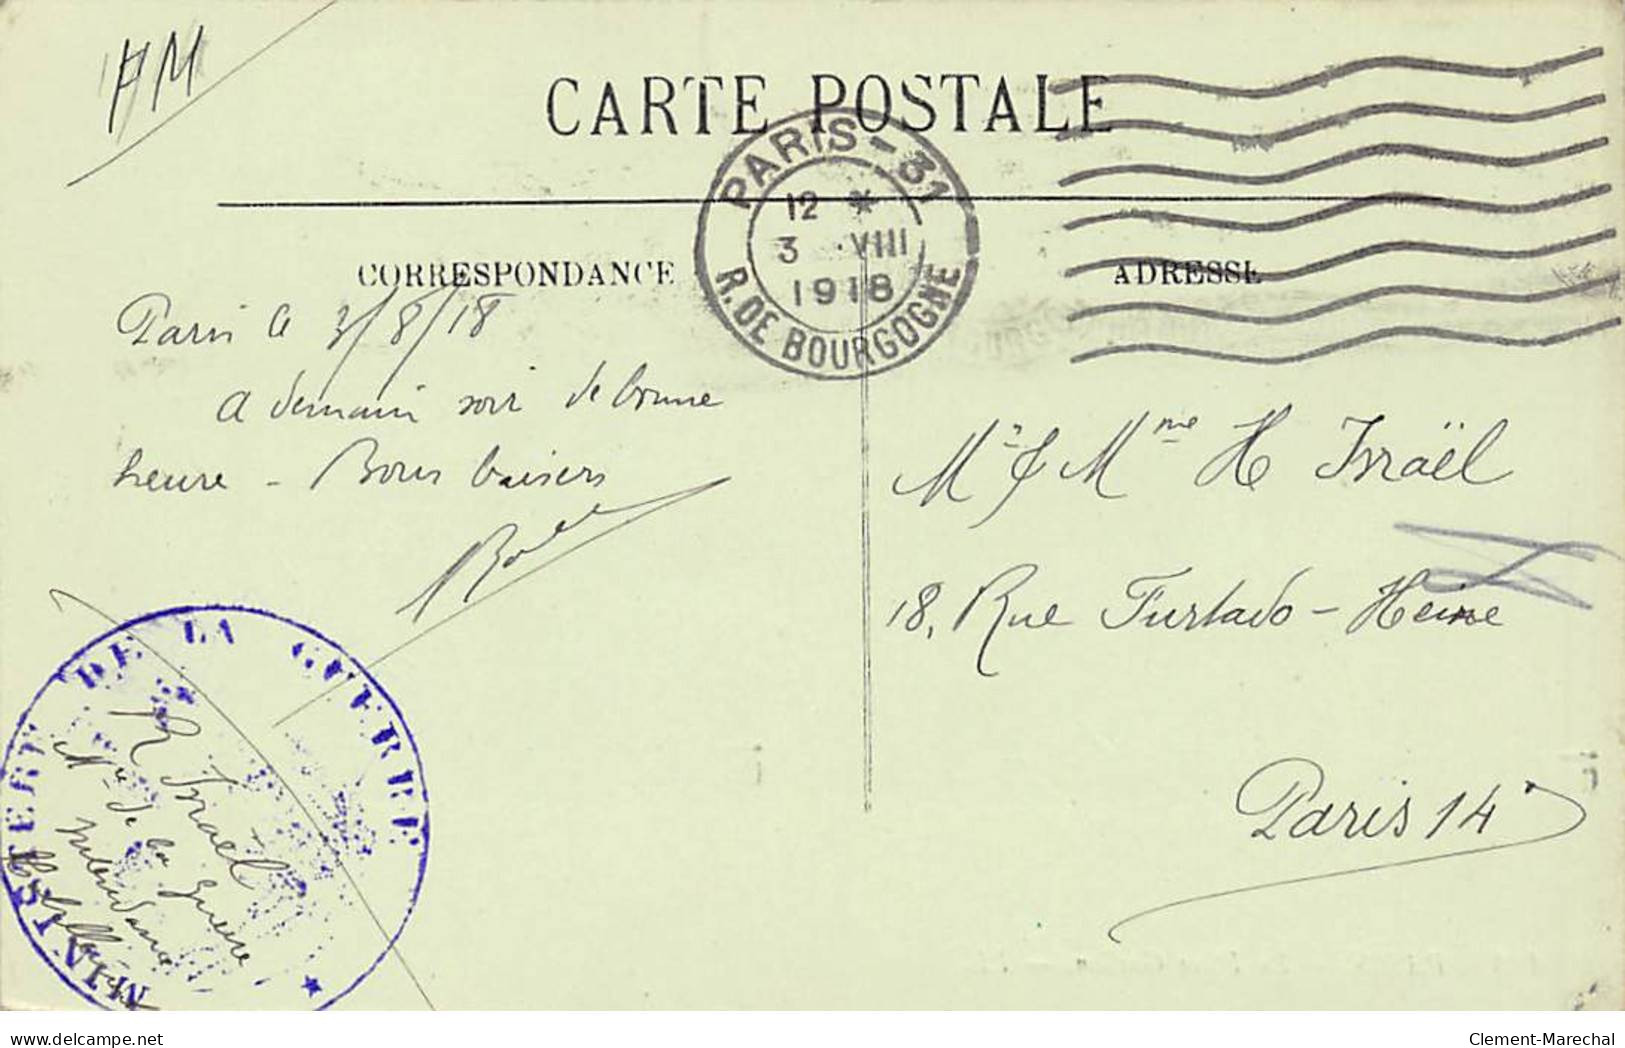 FM
CARTE POSTALE
PARIS - 31
12 *
3 ·VIII
1918
R. DE BOURGOGNE
CORRESPONDANCE
ADRESSE
Paris le 3/8/18
A demain soir de bonne
heure - Bons baisers
Mr & Mme H Israël
18, Rue Furtado-Heine
Paris 14e
MINISTERE DE LA GUERRE
R Israël
Mre de la guerre
Intendance
delcampe.net
Clement-Marechal